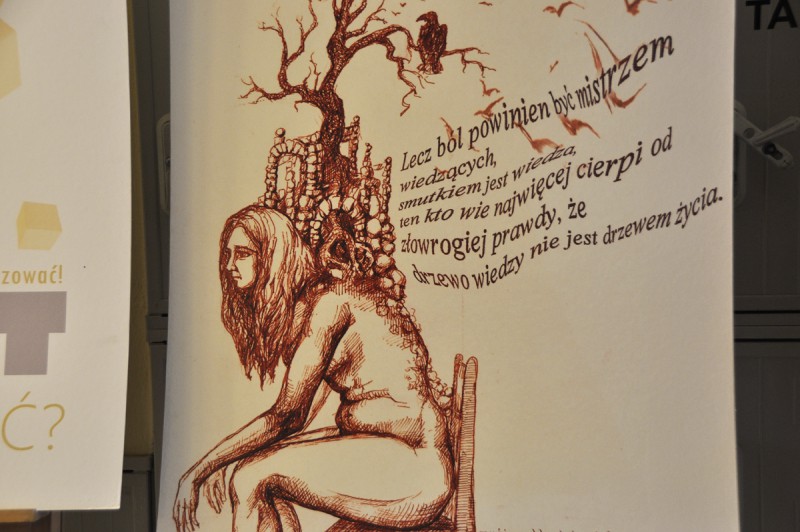 TA
Lecz ból powinien być mistrzem
wiedzących,
smutkiem jest wiedza,
ten kto wie najwięcej cierpi od
złowrogiej prawdy, że
drzewo wiedzy nie jest drzewem życia.
zować!
T
Ć?